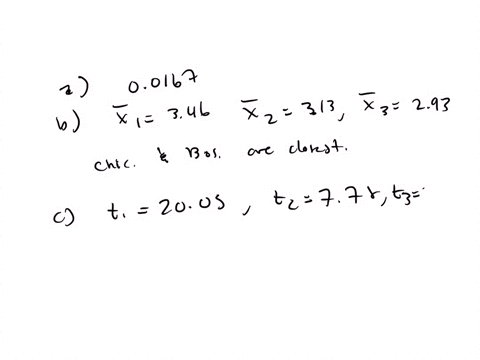 a) 0.0167
b) x̄1 = 3.46 x̄2 = 3.13, x̄3 = 2.93
Chic. & Bos. are closest.
c) t1 = 20.05, t2 = 7.78, t3=